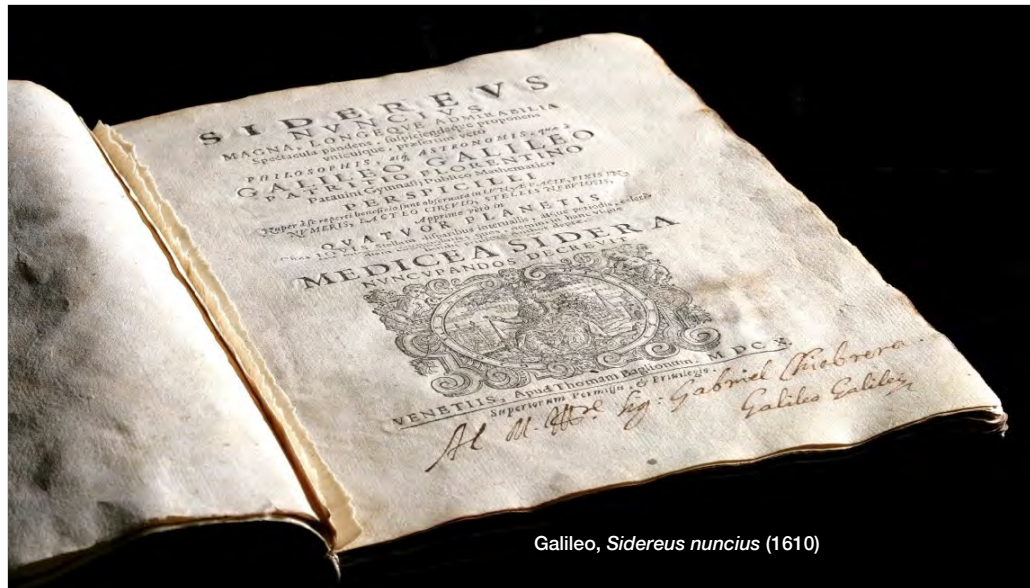 SIDEREVS
NVNCIVS
MAGNA, LONGEQVE ADMIRABILIA
Spectacula pandens, suspiciendaque proponens
vnicuique, præsertim verò
PHILOSOPHIS, atq; ASTRONOMIS, quæ à
GALILEO GALILEO
PATRITIO FLORENTINO
Patauini Gymnasij Publico Mathematico
PERSPICILLI
Nuper à se reperti beneficio sunt obseruata in LVNÆ FACIE, FIXIS IN-
NVMERIS, LACTEO CIRCVLO, STELLIS NEBVLOSIS,
Apprime verò in
QVATVOR PLANETIS
Circa IOVIS Stellam disparibus interuallis, atque periodis, celeri-
nemini in hanc vsque
MEDICEA SIDERA
NVNCVPANDOS DECREVIT
VENETIIS, Apud Thomam Baglionum, M DC X.
Superiorum Permissu, & Priuilegio.
Al M. Ill.re Sig: Gabriel Chiebrera.
Galileo Galilei
Galileo, Sidereus nuncius (1610)